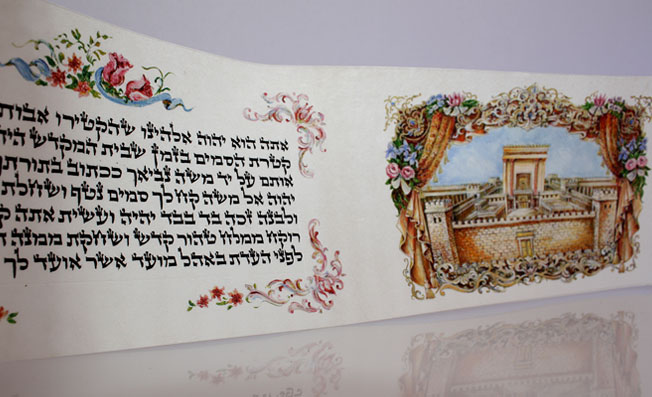 אתה הוא יהוה אלהינו שהקטירו אבות
קטרת הסמים בזמן שבית המקדש היה
אותם על יד משה נביאך ככתוב בתורתך
יהוה אל משה קח לך סמים נטף ושחלת
ולבנה זכה בד בבד יהיה ועשית אתה ק
רוקח ממלח טהור קדש ושחקת ממנה ה
לפני העדת באהל מועד אשר אועד לך